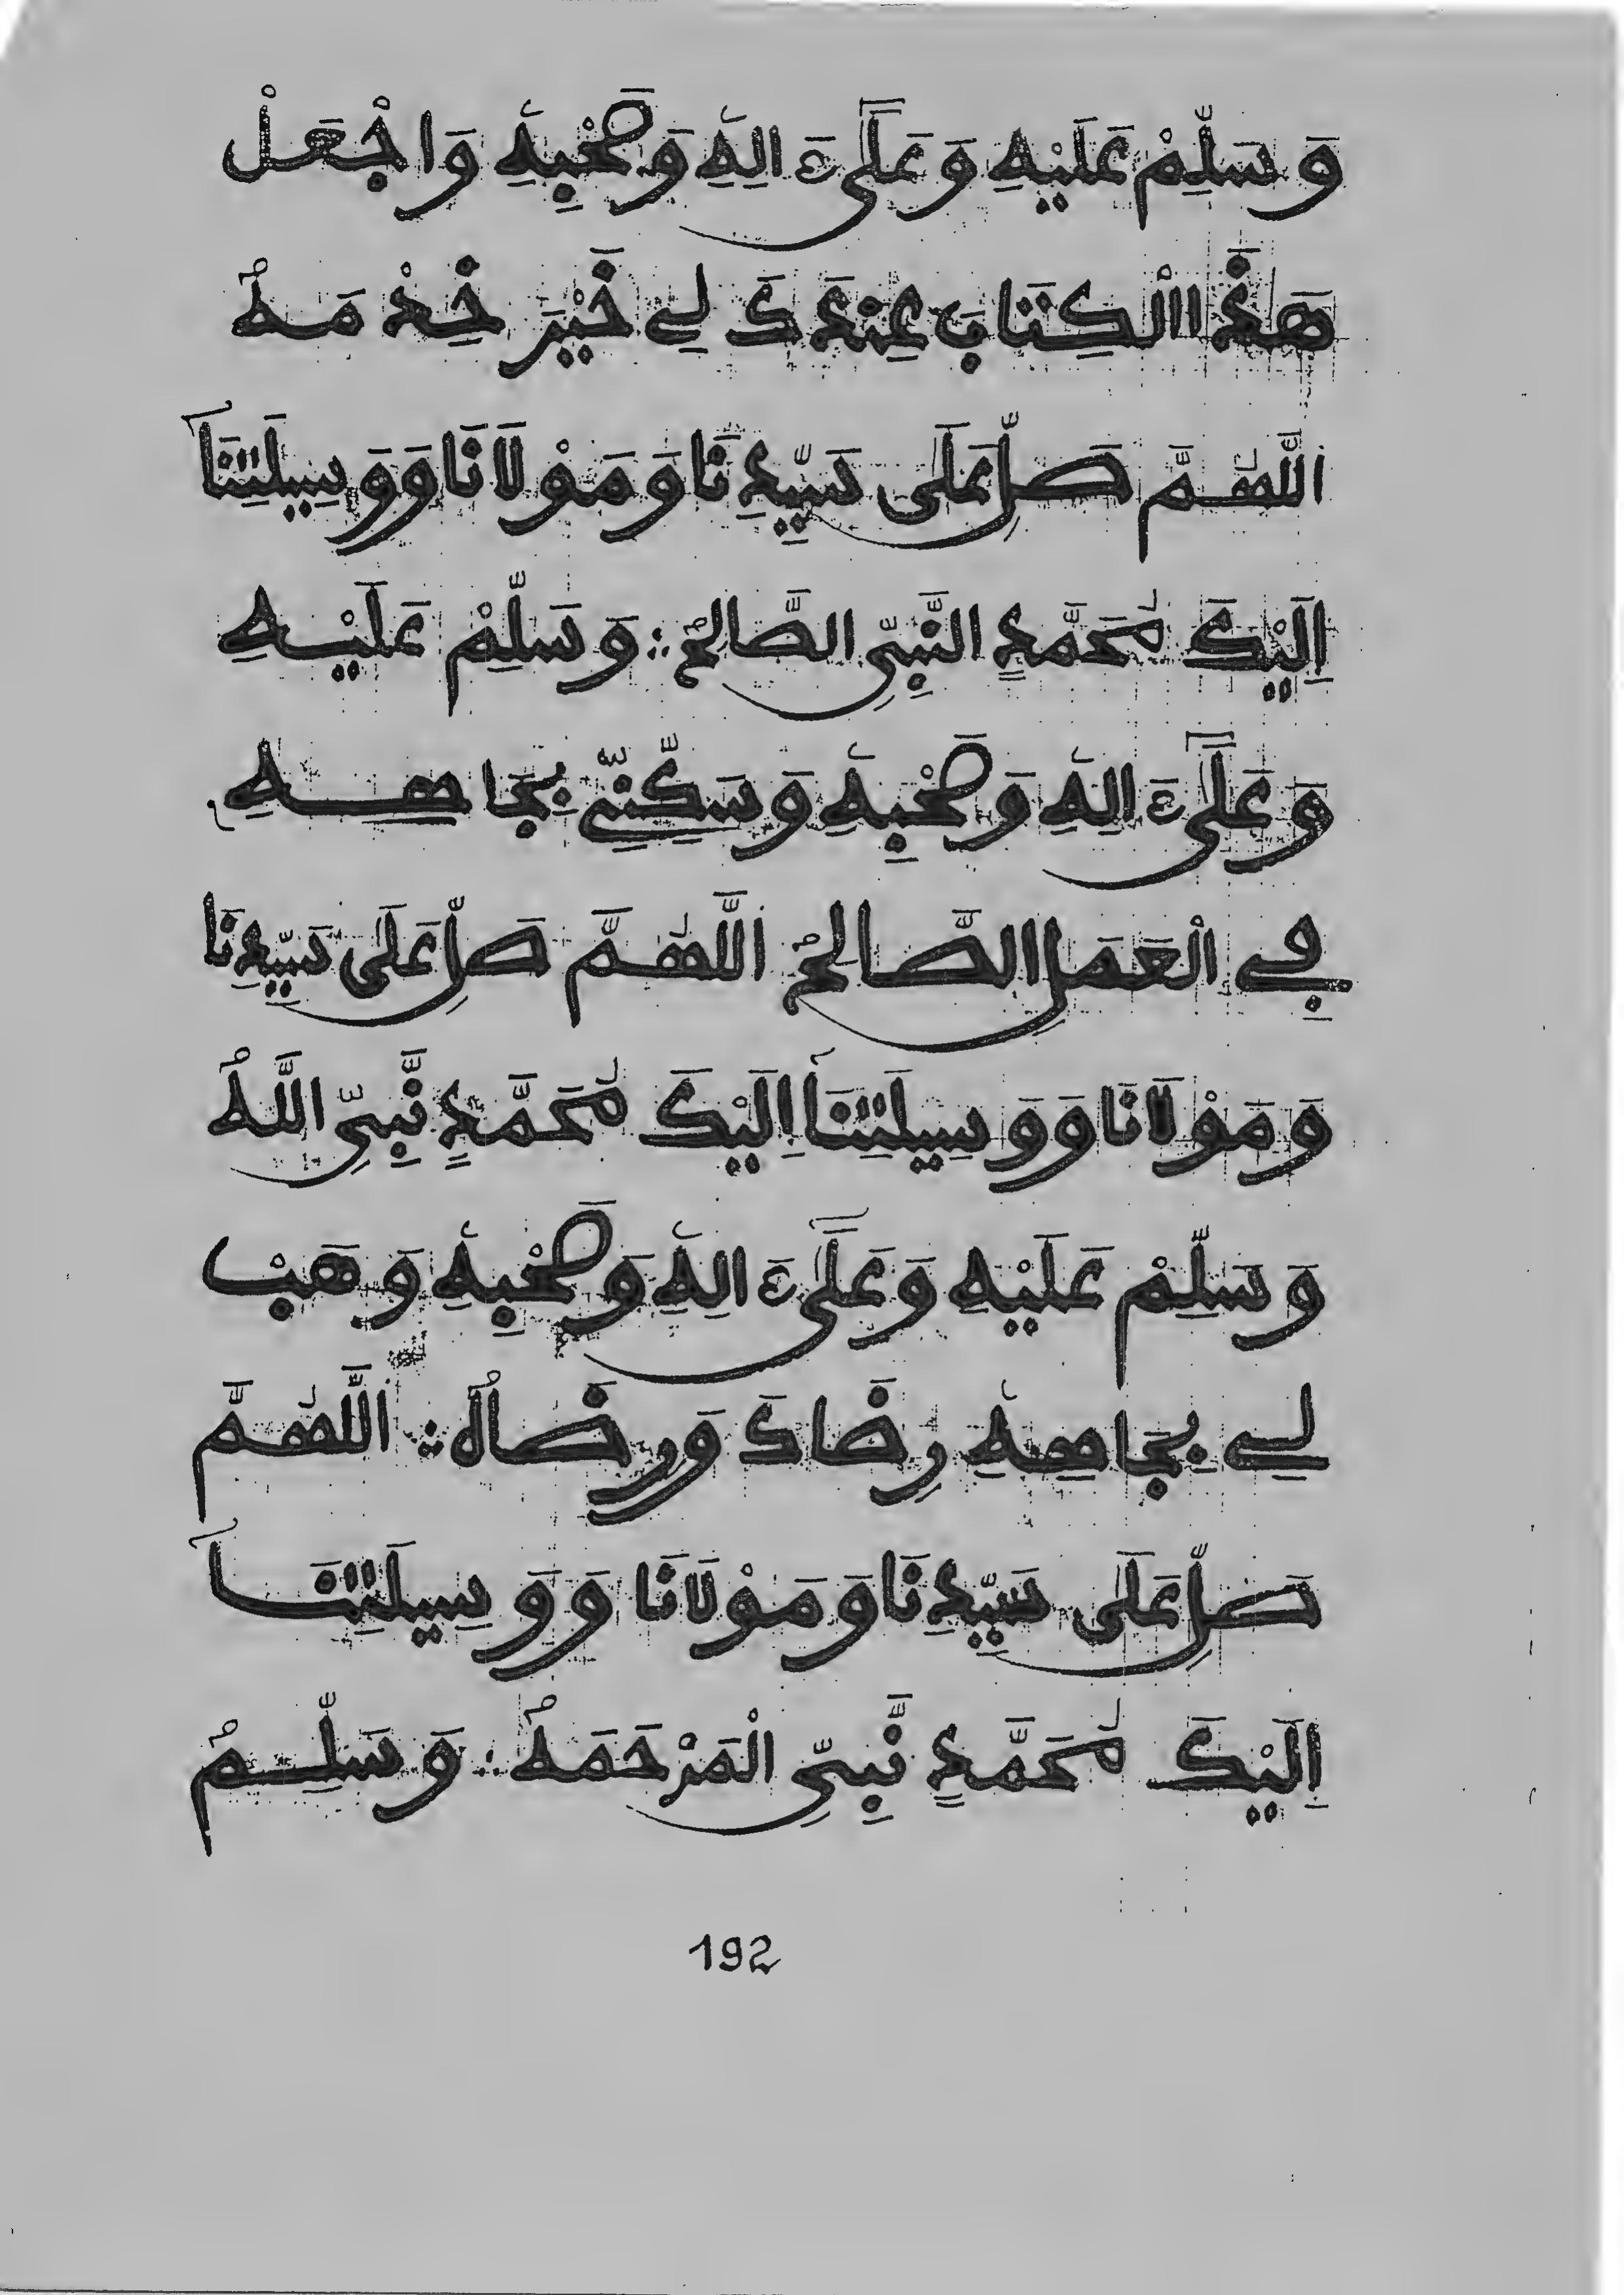 وَسَلِّمْ عَلَيْهِ وَعَلَىٰٓ ءَالِهِۦ وَصَحْبِهِۦ وَاجْعَلْ
هَذَا الْكِتَابَ عِنْدَكَ لِي خَيْرَ خِدْمَهْ
اللَّهُمَّ صَلِّ عَلَى سَيِّدِنَا وَمَوْلَانَا وَوَسِيلَتِنَآ
إِلَيْكَ مُحَمَّدٍ النَّبِيِّ الصَّالِحْ ۞ وَسَلِّمْ عَلَيْهِ
وَعَلَىٰٓ ءَالِهِۦ وَصَحْبِهِۦ وَسَكِّنِّي بِجَاهِهِ
فِي الْعَمَلِ الصَّالِحْ اللَّهُمَّ صَلِّ عَلَى سَيِّدِنَا
وَمَوْلَانَا وَوَسِيلَتِنَآ إِلَيْكَ مُحَمَّدٍ نَّبِيِّ اللَّهْ
وَسَلِّمْ عَلَيْهِ وَعَلَىٰٓ ءَالِهِۦ وَصَحْبِهِۦ وَهَبْ
لِي بِجَاهِهِۦ رِضَاكَ وَرِضَاهُ ۞ اللَّهُمَّ
صَلِّ عَلَى سَيِّدِنَا وَمَوْلَانَا وَوَسِيلَتِنَآ
إِلَيْكَ مُحَمَّدٍ نَّبِيِّ الْمَرْحَمَهْ ۞ وَسَلِّمْ
192